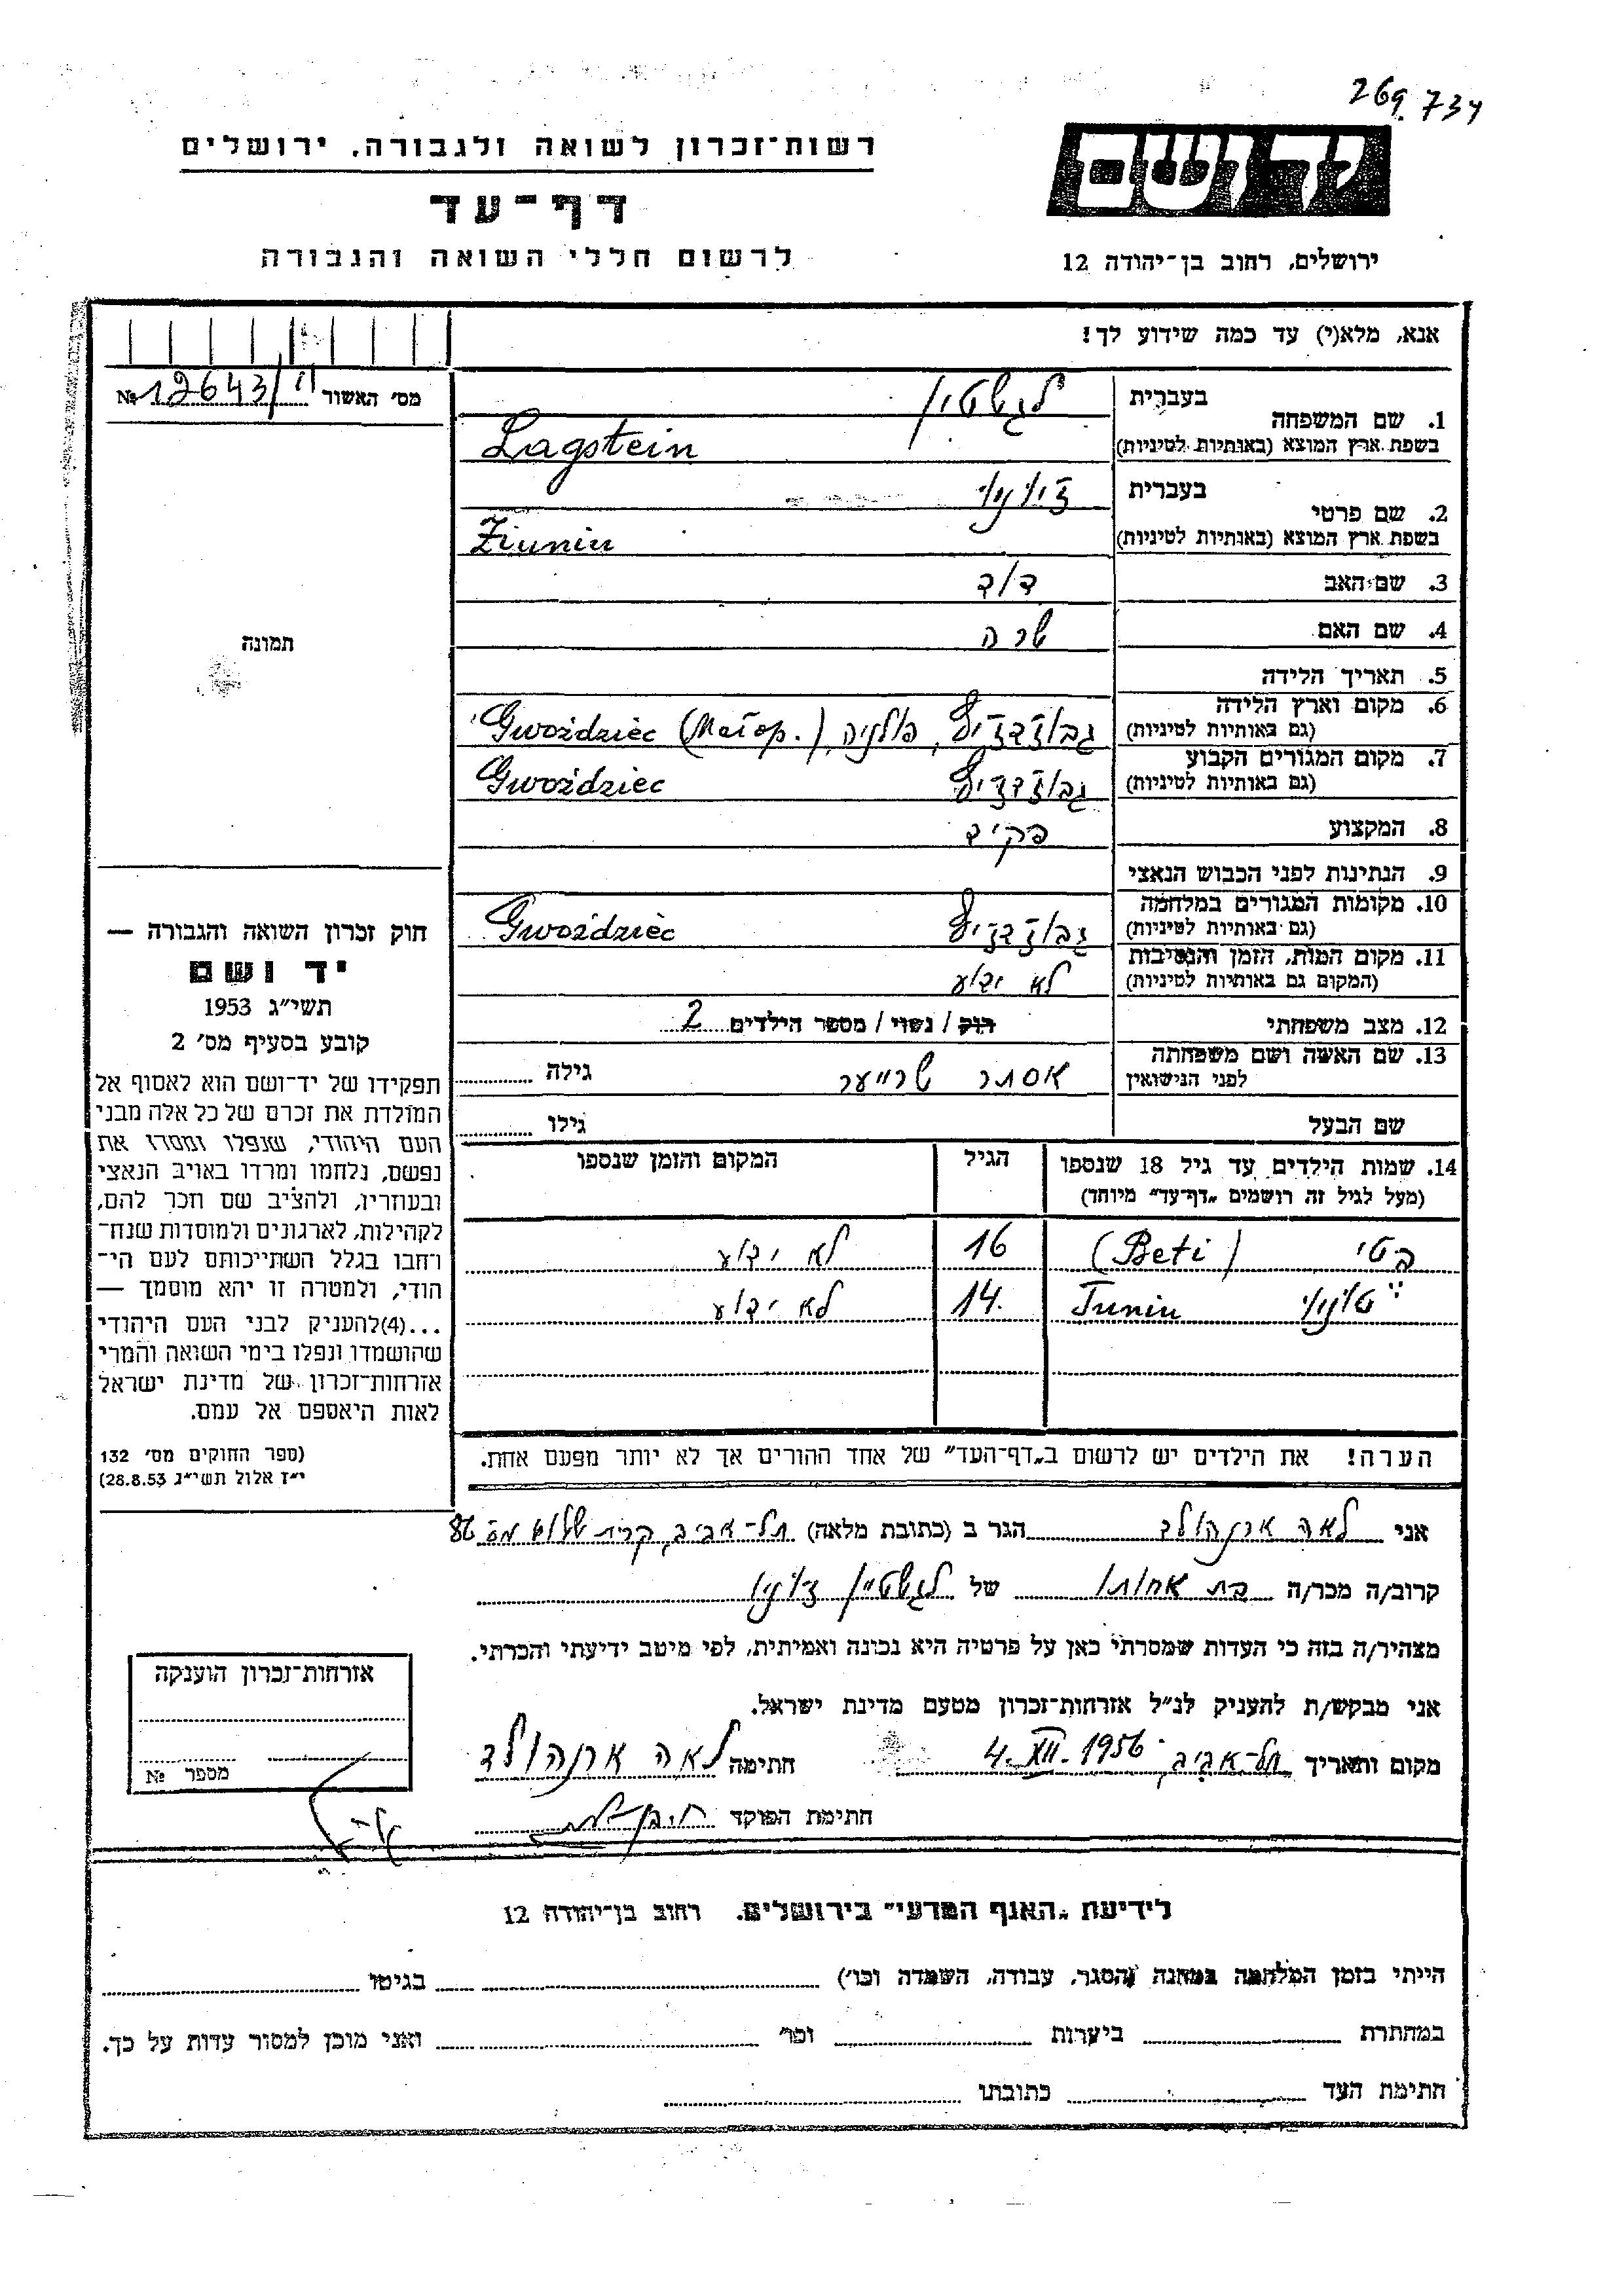 269.734
רשות־זכרון לשואה ולגבורה, ירושלים
ידושם
דף־עד
לרשום חללי השואה והגבורה
ירושלים, רחוב בן־יהודה 12
אנא, מלא(י) עד כמה שידוע לך!
מס׳ האשור № 12643/
1. שם המשפחה
בעברית לגשטין
בשפת ארץ המוצא (באותיות לטיניות) Lagstein
2. שם פרטי
בעברית
בשפת ארץ המוצא (באותיות לטיניות) Ziuniu
3. שם האב דוד
4. שם האם שרה
5. תאריך הלידה
6. מקום וארץ הלידה גבוזדז׳יץ, פולניה, Gwoździec (Małop.)
(גם באותיות לטיניות)
7. מקום המגורים הקבוע Gwoździec
(גם באותיות לטיניות)
8. המקצוע פקיד
9. הנתינות לפני הכבוש הנאצי
10. מקומות המגורים במלחמה Gwoździec
(גם באותיות לטיניות)
11. מקום המות, הזמן והנסיבות לא ידוע
(המקום גם באותיות לטיניות)
12. מצב משפחתי רוק / נשוי / מספר הילדים 2
13. שם האשה ושם משפחתה אסתר שרייער גילה
לפני הנישואין
שם הבעל גילו
14. שמות הילדים עד גיל 18 שנספו הגיל המקום והזמן שנספו
(מעל לגיל זה רושמים „דף־עד״ מיוחד)
בטי (Beti) 16 לא ידוע
Juniu 14. לא ידוע
הערה! את הילדים יש לרשום ב„דף־העד״ של אחד ההורים אך לא יותר מפעם אחת.
תמונה
חוק זכרון השואה והגבורה —
יד ושם
תשי״ג 1953
קובע בסעיף מס׳ 2
תפקידו של יד־ושם הוא לאסוף אל
המולדת את זכרם של כל אלה מבני
העם היהודי, שנפלו ומסרו את
נפשם, נלחמו ומרדו באויב הנאצי
ובעוזריו, ולהציב שם וזכר להם,
לקהילות, לארגונים ולמוסדות שנח־
רחבו בגלל השתייכותם לעם הי־
הודי, ולמטרה זו יהא מוסמך —
...(4) להעניק לבני העם היהודי
שהושמדו ונפלו בימי השואה והמרי
אזרחות־זכרון של מדינת ישראל
לאות היאספם אל עמם.
(ספר החוקים מס׳ 132
י״ז אלול תשי״ג 28.8.53)
אני לאה ארנהולד הגר ב (כתובת מלאה) תל־אביב, קרית שלום מס 86
קרוב/ה מכר/ה בת אחותו של לגשטיין
מצהיר/ה בזה כי העדות שמסרתי כאן על פרטיה היא נכונה ואמיתית, לפי מיטב ידיעתי והכרתי.
אני מבקש/ת להעניק לנ״ל אזרחות־זכרון מטעם מדינת ישראל.
מקום ותאריך תל־אביב 4.XII.1956 חתימה לאה ארנהולד
חתימת הפוקד
אזרחות־זכרון הוענקה
מספר №
לידיעת „האגף המדעי״ בירושלים. רחוב בן־יהודה 12
הייתי בזמן המלחמה במחנה (הסגר, עבודה, השמדה וכו׳) בגיטו
במחתרת ביערות וכו׳ ואני מוכן למסור עדות על כך.
חתימת העד כתובתו